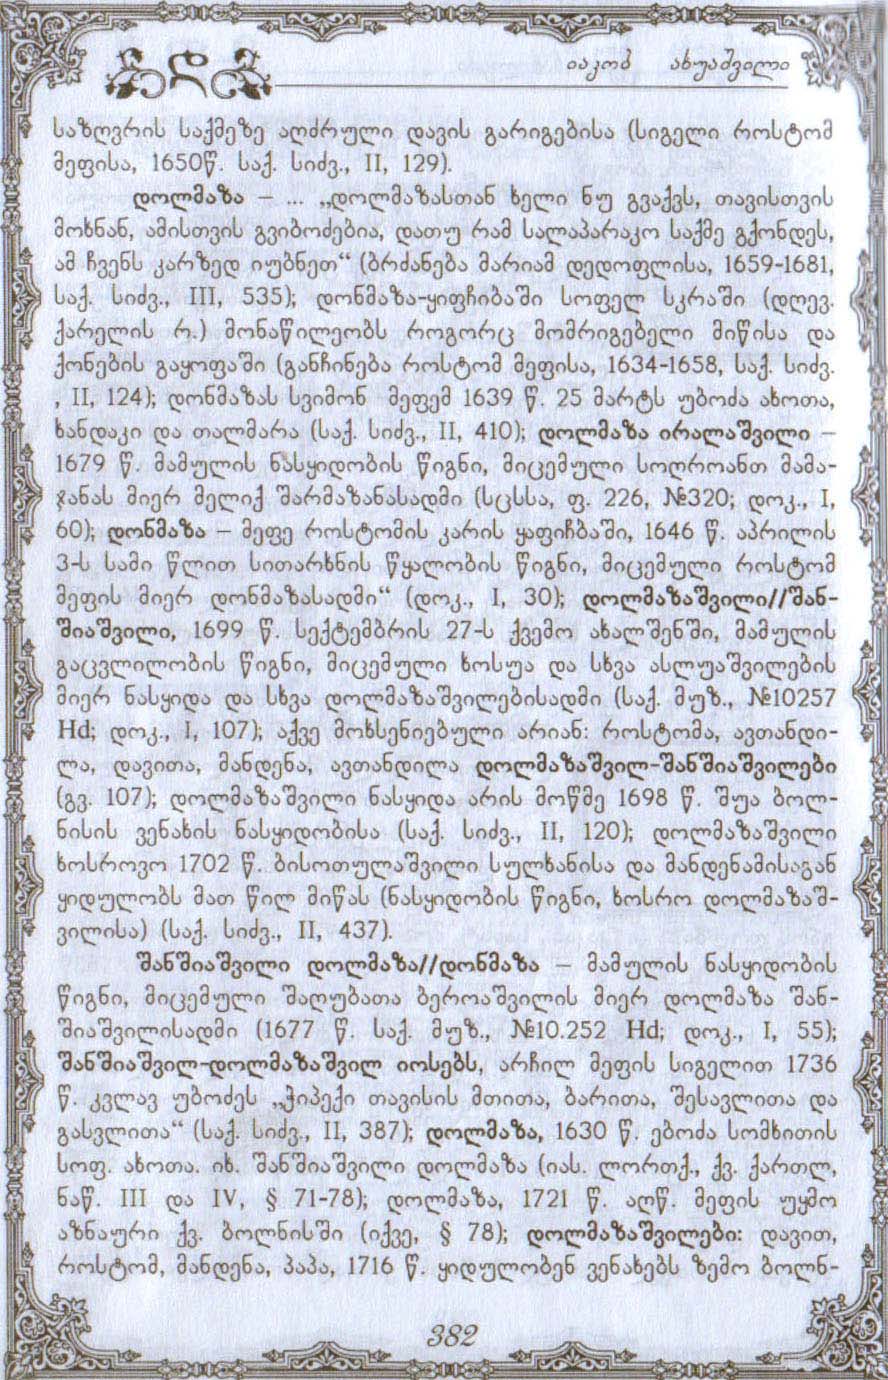 დ
იაკობ ახუაშვილი
საზღვრის საქმეზე აღძრული დავის გარიგებისა (სიგელი როსტომ
მეფისა, 1650წ. საქ. სიძვ., II, 129).
დოლმაზა – ... „დოლმაზასთან ხელი ნუ გვაქვს, თავისთვის
მოხნან, ამისთვის გვიბოძებია, დათუ რამ სალაპარაკო საქმე გქონდეს,
ამ ჩვენს კარზედ იუბნეთ“ (ბრძანება მარიამ დედოფლისა, 1659-1681,
საქ. სიძვ., III, 535); დონმაზა-ყიფჩიბაში სოფელ სკრაში (დღევ.
ქარელის რ.) მონაწილეობს როგორც მომრიგებელი მიწისა და
ქონების გაყოფაში (განჩინება როსტომ მეფისა, 1634-1658, საქ. სიძვ.
, II, 124); დონმაზას სვიმონ მეფემ 1639 წ. 25 მარტს უბოძა ახოთა,
ხანდაკი და თალმარა (საქ. სიძვ., II, 410); დოლმაზა ირალაშვილი –
1679 წ. მამულის ნასყიდობის წიგნი, მიცემული სოღროანთ მამა-
ჯანას მიერ მელიქ შარმაზანასადმი (სცსსა, ფ. 226, №320; დოკ., I,
60); დონმაზა – მეფე როსტომის კარის ყაფიჩბაში, 1646 წ. აპრილის
3-ს სამი წლით სითარხნის წყალობის წიგნი, მიცემული როსტომ
მეფის მიერ დონმაზასადმი“ (დოკ., I, 30); დოლმაზაშვილი//შან-
შიაშვილი, 1699 წ. სექტემბრის 27-ს ქვემო ახალშენში, მამულის
გაცვლილობის წიგნი, მიცემული ხოსუა და სხვა ასლუაშვილების
მიერ ნასყიდა და სხვა დოლმაზაშვილებისადმი (საქ. მუზ., №10257
Hd; დოკ., I, 107); აქვე მოხსენიებული არიან: როსტომა, ავთანდი-
ლა, დავითა, მანდენა, ავთანდილა დოლმაზაშვილ-შანშიაშვილები
(გვ. 107); დოლმაზაშვილი ნასყიდა არის მოწმე 1698 წ. შუა ბოლ-
ნისის ვენახის ნასყიდობისა (საქ. სიძვ., II, 120); დოლმაზაშვილი
ხოსროვო 1702 წ. ბისოთულაშვილი სულხანისა და მანდენამისაგან
ყიდულობს მათ წილ მიწას (ნასყიდობის წიგნი, ხოსრო დოლმაზაშ-
ვილისა) (საქ. სიძვ., II, 437).
შანშიაშვილი დოლმაზა//დონმაზა – მამულის ნასყიდობის
წიგნი, მიცემული შაღუბათა ბეროაშვილის მიერ დოლმაზა შან-
შიაშვილისადმი (1677 წ. საქ. მუზ., №10.252 Hd; დოკ., I, 55);
შანშიაშვილ-დოლმაზაშვილ იოსებს, არჩილ მეფის სიგელით 1736
წ. კვლავ უბოძეს „ჭიპექი თავისის მთითა, ბარითა, შესავლითა და
გასვლითა“ (საქ. სიძვ., II, 387); დოლმაზა, 1630 წ. ებოძა სომხითის
სოფ. ახოთა. იხ. შანშიაშვილი დოლმაზა (იას. ლორთქ., ქვ. ქართლ,
ნაწ. III და IV, § 71-78); დოლმაზა, 1721 წ. აღწ. მეფის უყმო
აზნაური ქვ. ბოლნისში (იქვე, § 78); დოლმაზაშვილები: დავით,
როსტომ, მანდენა, პაპა, 1716 წ. ყიდულობენ ვენახებს ზემო ბოლნ-
382